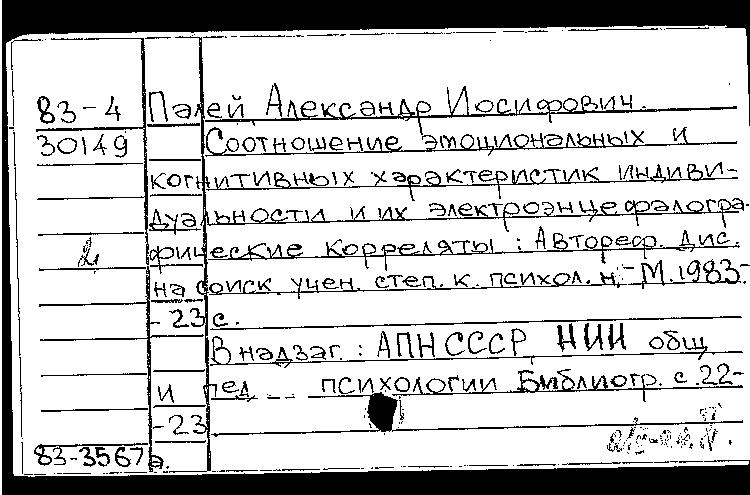 83-4 Палей, Александр Иосифович.
30149 Соотношение эмоциональных и
когнитивных характеристик индиви-
дуальности и их электроэнцефалогра-
2 фические корреляты : Автореф. дис.
на соиск. учен. степ. к. психол. н.- М. 1983.-
- 23 с.
В надзаг. : АПН СССР, НИИ общ.
и пед ... психологии Библиогр. с. 22-
-23
83-3567а.